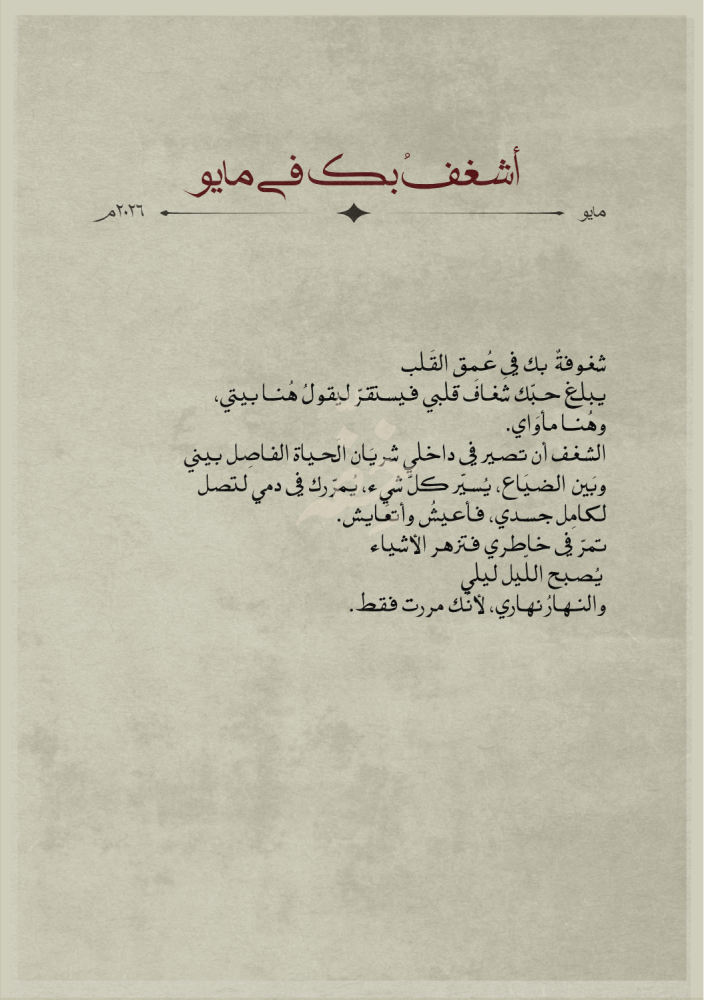 أشغفُ بك في مايو
مايو
٢٠٢٦م
شغوفةٌ بك في عُمق القَلب
يبلغ حبّك شغافَ قلبي فيستقرّ ليقولُ هُنا بيتي،
وهُنا مأوَاي.
الشغف أن تصير في داخلي شريَان الحياة الفاصِل بيني
وبَين الضيَاع، يُسيّر كلّ شيء، يُمرّرك في دمي لتصل
لكامِل جسدي، فأعيشُ وأتعَايش.
تمرّ في خاطري فتزهر الأشياء
يُصبح اللّيل ليلي
والنهارُ نهاري، لأنّك مررت فقط.